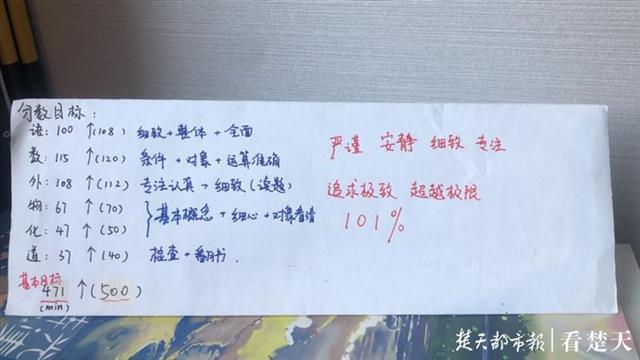 分数目标：
语：100 ↑(108) 细致+整体+全面
数：115 ↑(120) 条件+对象+运算准确
外：108 ↑(112) 专注认真+细致(读题)
物：67 ↑(70)
化：47 ↑(50) }基本概念+细心+对象看清
道：37 ↑(40) 检查+翻书.
基本目标
471 ↑(500)
(min)
严谨 安静 细致 专注
追求极致 超越极限
101%
楚天都市报 | 看楚天